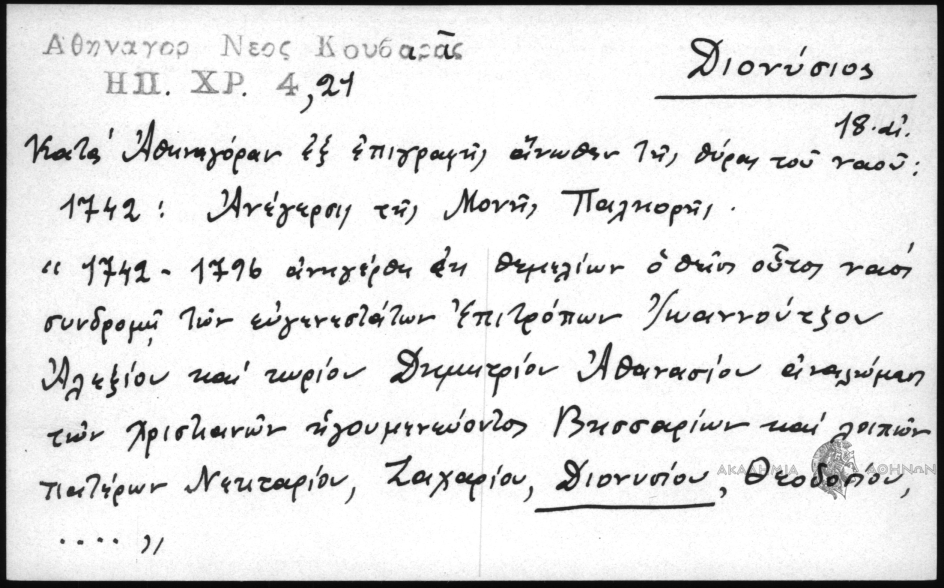 Αθηναγορ Νεος Κουβαρᾶς
ΗΠ. ΧΡ. 4, 21
Διονύσιος
18. αἰ.
Κατὰ Ἀθηναγόραν ἐξ ἐπιγραφῆς ἄνωθεν τῆς θύρας τοῦ ναοῦ:
1742: Ἀνέγερσις τῆς Μονῆς Παλιορῆς.
« 1742 - 1796 ἀνηγέρθη ἐκ θεμελίων ὁ θεῖος οὗτος ναός
συνδρομῇ τῶν εὐγενεστάτων Ἐπιτρόπων
Ἀλεξίου καὶ κυρίου Δημητρίου Ἀθανασίου ἀναλώμασι
τῶν Χριστιανῶν ἡγουμενεύοντος Βησσαρίων καὶ λοιπῶν
πατέρων Νεκταρίου, Ζαχαρίου, Διονυσίου, Θεοδοσίου,
.... »
ΑΚΑΔΗΜΙΑ ΑΘΗΝΩΝ